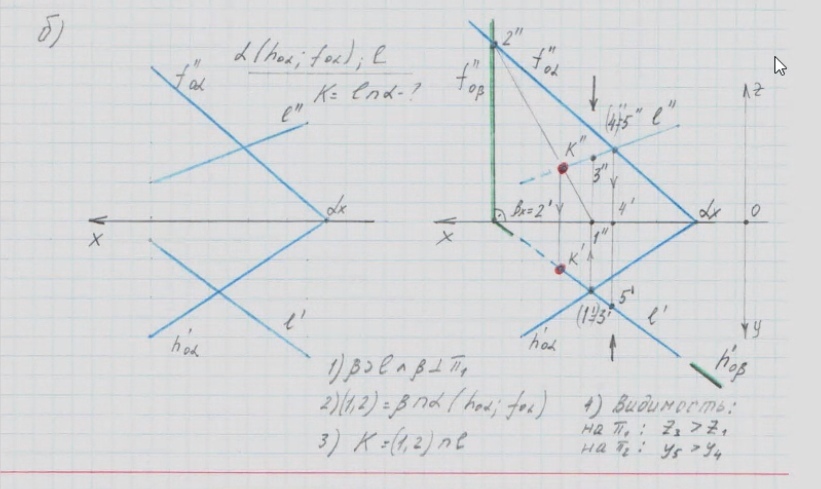 б)
α(h₀α; f₀α), l
K = l∩α - ?
f''₀α
l''
αx
x
l'
h'₀α
2''
f''₀β
f''₀α
(4'')≡5''
l''
z
K''
3''
βx=2'
4'
αx
0
x
1''
K'
5'
(1')≡3'
l'
y
h'₀α
h'₀β
1) β⊃l ∧ β⊥π₁
2) (1,2) = β∩α (h₀α; f₀α)
3) K = (1,2)∩l
4) Видимость:
на π₁: z₃ > z₁
на π₂: y₅ > y₄